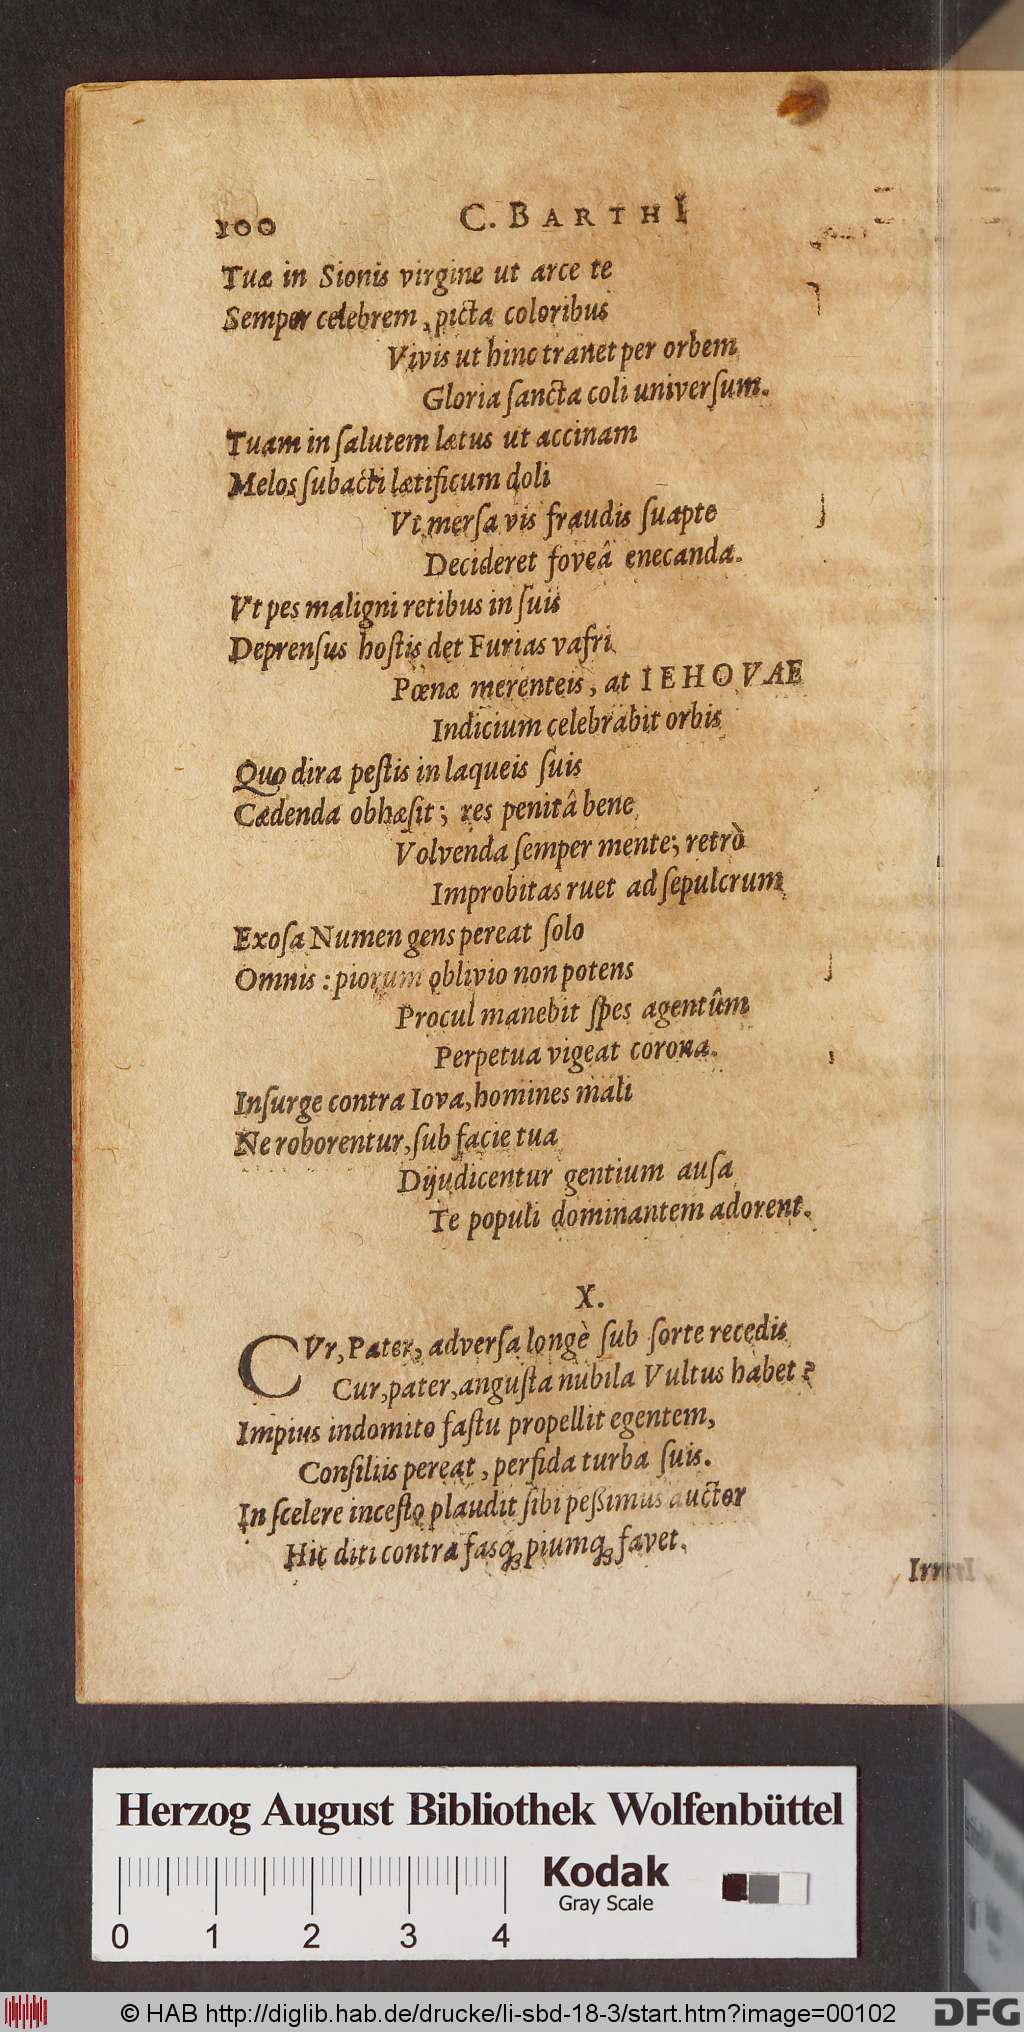 100 C. BARTHI
Tuæ in Sionis virgine ut arce te
Semper celebrem, picta coloribus
Vivis ut hinc tranet per orbem
Gloria ſancta coli univerſum.
Tuam in ſalutem lætus ut accinam
Melos ſubacti lætificum doli
Vt merſa vis fraudis ſuapte
Decideret foveâ enecanda.
Vt pes maligni retibus in ſuis
Deprenſus hoſtis det Furias vafri
Pœnæ merenteis, at IEHOVAE
Indicium celebrabit orbis
Quo dira peſtis in laqueis ſuis
Cædenda obhæſit; res penitâ bene
Volvenda ſemper mente; retrò
Improbitas ruet ad ſepulcrum
Exoſa Numen gens pereat ſolo
Omnis: piorum oblivio non potens
Procul manebit ſpes agentûm
Perpetua vigeat corona.
Inſurge contra Iova, homines mali
Ne roborentur, ſub facie tua
Dijudicentur gentium auſa
Te populi dominantem adorent.
X.
CVr, Pater, adverſa longè ſub ſorte recedis
Cur, pater, anguſta nubila Vultus habet?
Impius indomito faſtu propellit egentem,
Conſiliis pereat, perfida turba ſuis.
In ſcelere inceſto plaudit ſibi peßimus auctor
Hic diti contra fasq́; piumq́; favet.
Irrit
Herzog August Bibliothek Wolfenbüttel
Kodak
Gray Scale
0 1 2 3 4
© HAB http://diglib.hab.de/drucke/li-sbd-18-3/start.htm?image=00102
DFG